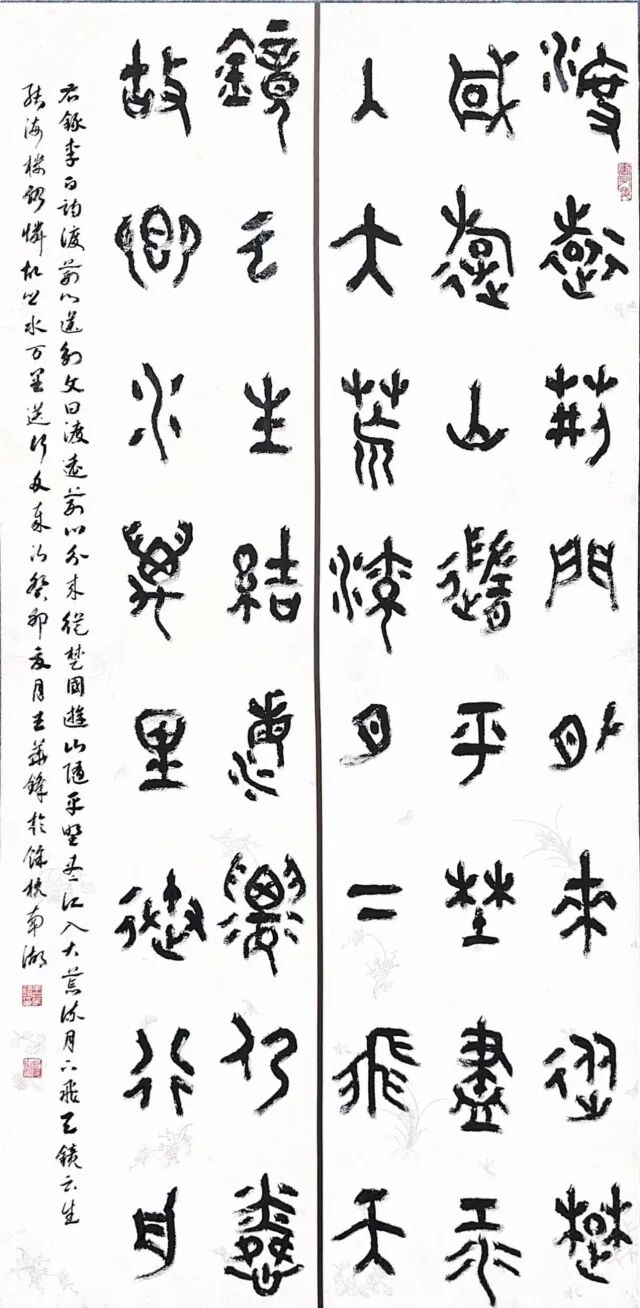 渡遠荆門外來從楚
國遊山隨平埜盡江
入大荒流月下飛天
鏡云生結海樓仍憐
故鄉水萬里送行舟
右錄李白詩渡荆門送別文曰渡遠荆門外來從楚國遊山隨平埜盡江入大荒流月下飛天鏡云生
結海樓仍憐故鄉水萬里送行舟歲次癸卯夏月鋒於餘杭南湖